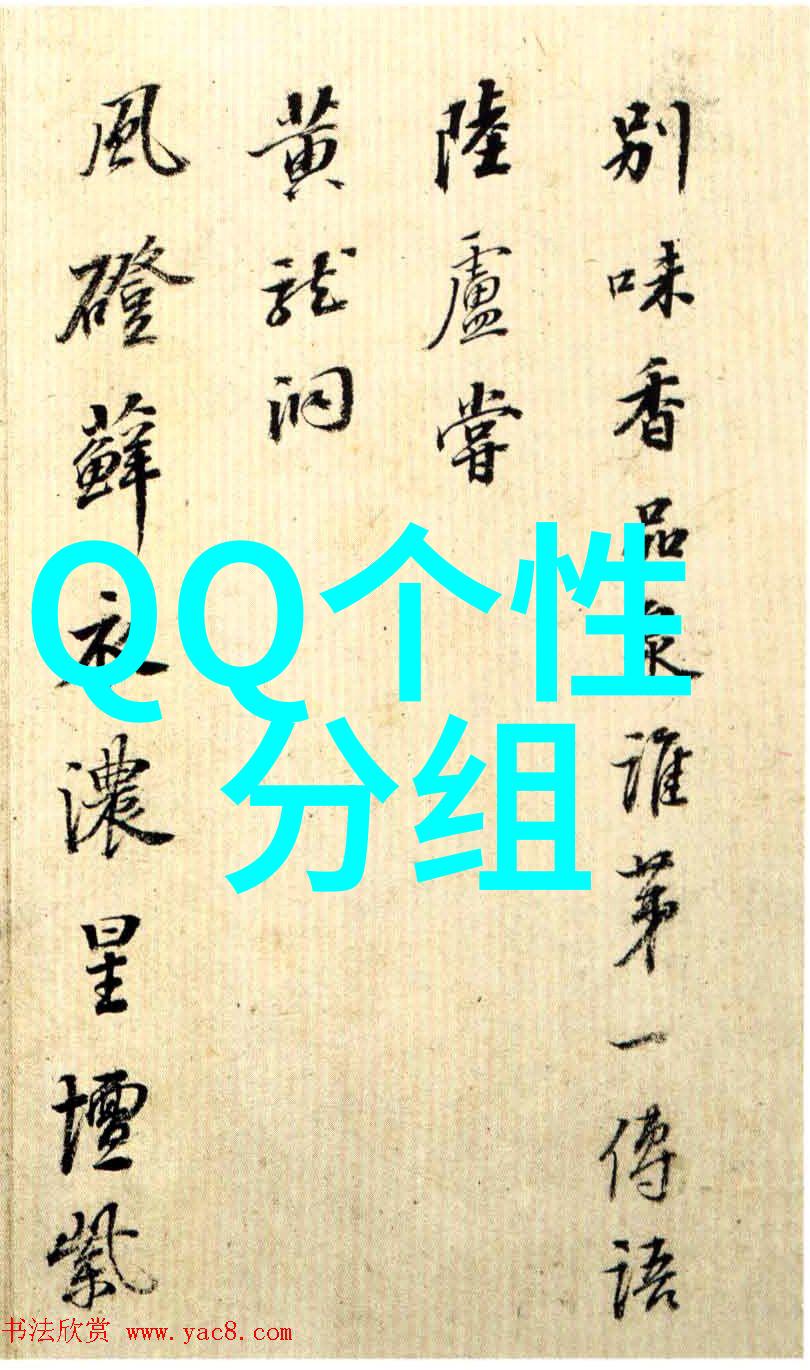 別味香品泉誰苐一傳語
陸盧嘗
黄龍洞
風磴蘚衣濃星壇紫
QQ个性
分组
书法欣赏 www.yac8.com